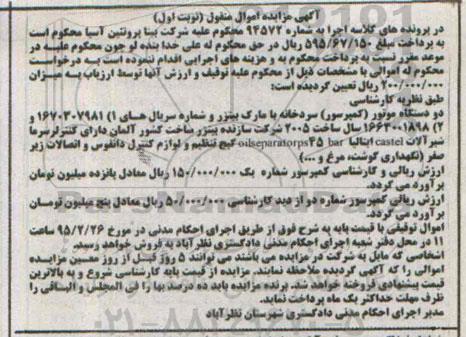 آگهی مزایده اموال منقول (نوبت اول)
در پرونده های کلاسه اجرا به شماره ۹۴۵۷۲ محکوم علیه شرکت بینا پروتئین آسیا محکوم است
به پرداخت مبلغ ۵۹۵/۶۷/۱۵۰ ریال در حق محکوم له علی خدا بنده لو چون محکوم علیه در
موعد مقرر نسبت به پرداخت محکوم به و هزینه های اجرایی اقدام ننموده است به درخواست
محکوم له اموالی با مشخصات ذیل از محکوم علیه توقیف و ارزش آنها توسط ارزیاب به میزان
۲۰۰/۰۰۰/۰۰۰ ریال تعیین گردیده است:
طبق نظریه کارشناسی
دو دستگاه موتور (کمپرسور) سردخانه با مارک بیتزر و شماره سریال های ۱) ۱۶۷۰۳۰۷۹۸۱ و
۲) ۱۶۶۳۰۰۱۸۹۸ سال ساخت ۲۰۰۵ شرکت سازنده بیتزر ساخت کشور آلمان دارای کنترلرسرما
شیرآلات castel ایتالیا oilseparatorps۴۵ bar گیج تنظیم و لوازم کنترل دانفوس و اتصالات زیر
صفر (نگهداری گوشت، مرغ و ...)
ارزش ریالی و کارشناسی کمپرسور شماره یک ۱۵۰/۰۰۰/۰۰۰ ریال معادل پانزده میلیون تومان
برآورد می گردد.
ارزش ریالی کمپرسور شماره دو از دید کارشناسی ۵۰/۰۰۰/۰۰۰ ریال معادل پنج میلیون تومان
برآورد می گردد.
اموال توقیفی با قیمت پایه به شرح فوق از طریق اجرای احکام مدنی در مورخ ۹۵/۲/۲۶ ساعت
۱۱ در محل دفتر شعبه اجرای احکام مدنی دادگستری نظرآباد به فروش خواهد رسید.
اشخاصی که مایل به شرکت در مزایده می باشند می توانند ۵ روز قبل از روز معین مزایده
اموالی را که آگهی گردیده ملاحظه نمایند. مزایده از قیمت پایه کارشناسی شروع و به بالاترین
قیمت پیشنهادی فروخته خواهد شد. برنده مزایده باید ده درصد بها را فی المجلس و الباقی را
ظرف مهلت حداکثر یک ماه پرداخت نماید.
مدیر اجرای احکام مدنی دادگستری شهرستان نظرآباد